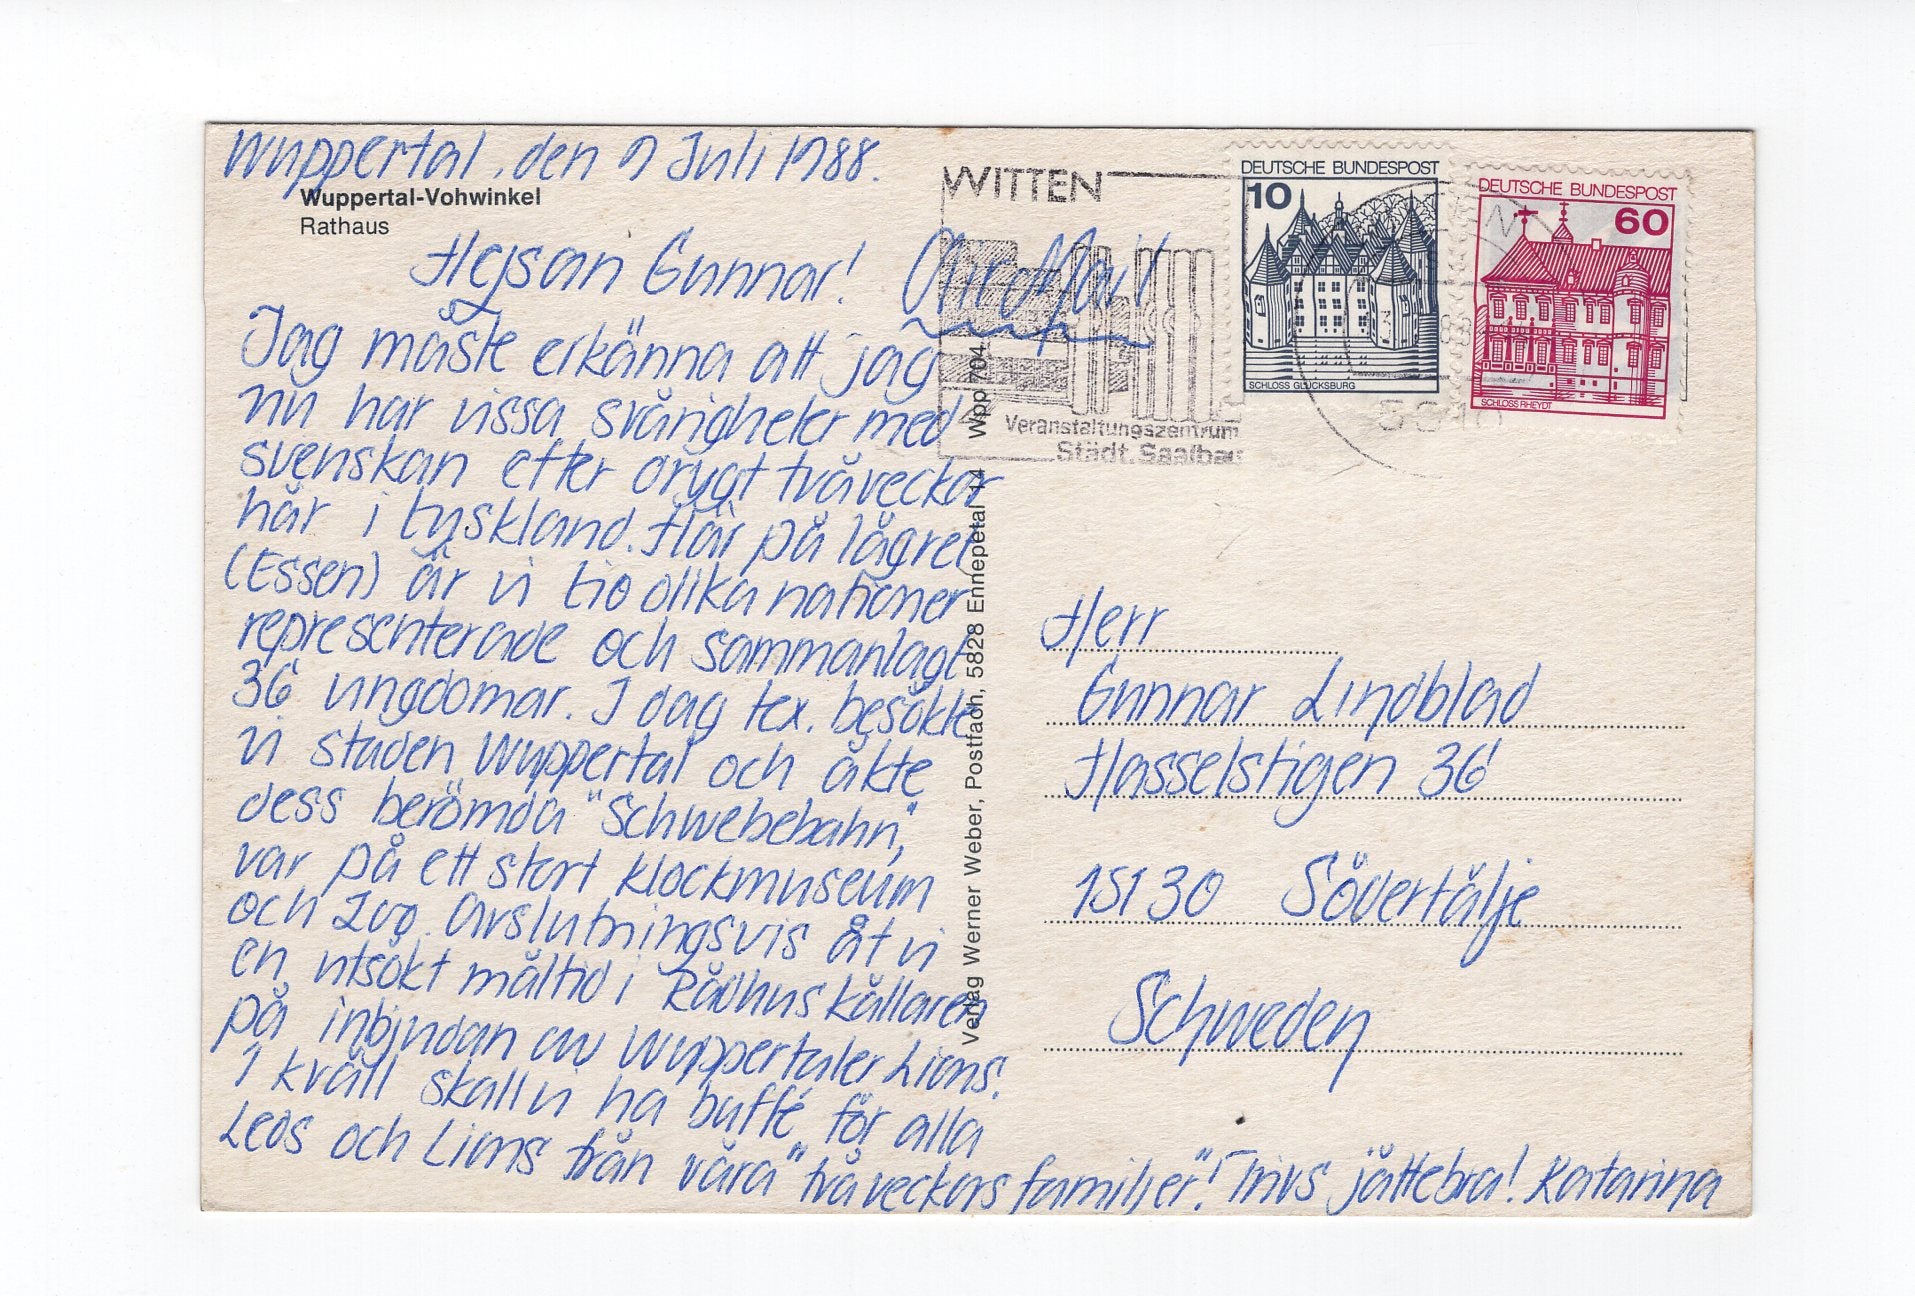 Wuppertal, den 9 Juli 1988.
Wuppertal-Vohwinkel
Rathaus
Hejsan Gunnar!
Jag måste erkänna att jag
nu har vissa svårigheter med
svenskan efter drygt två veckor
här i Tyskland. Här på lägret
(Essen) är vi tio olika nationer
representerade och sammanlagt
36 ungdomar. I dag tex. besökte
vi staden Wuppertal och åkte
dess berömda "Schwebebahn",
var på ett stort klockmuseum
och Zoo. Avslutningsvis åt vi
en utsökt måltid i Rådhuskällaren
på inbjudan av Wuppertaler Lions.
I kväll skall vi ha buffé för alla
Leos och Lions från våra "tvåveckors familjer"! Trivs jättebra! Katarina
Verlag Werner Weber, Postfach, 5828 Ennepetal 14 Wpp 704
Air Mail
WITTEN
Veranstaltungszentrum
Städt. Saalbau
DEUTSCHE BUNDESPOST
10
SCHLOSS GLÜCKSBURG
DEUTSCHE BUNDESPOST
60
SCHLOSS RHEYDT
Herr
Gunnar Lindblad
Hasselstigen 36
15130 Södertälje
Schweden